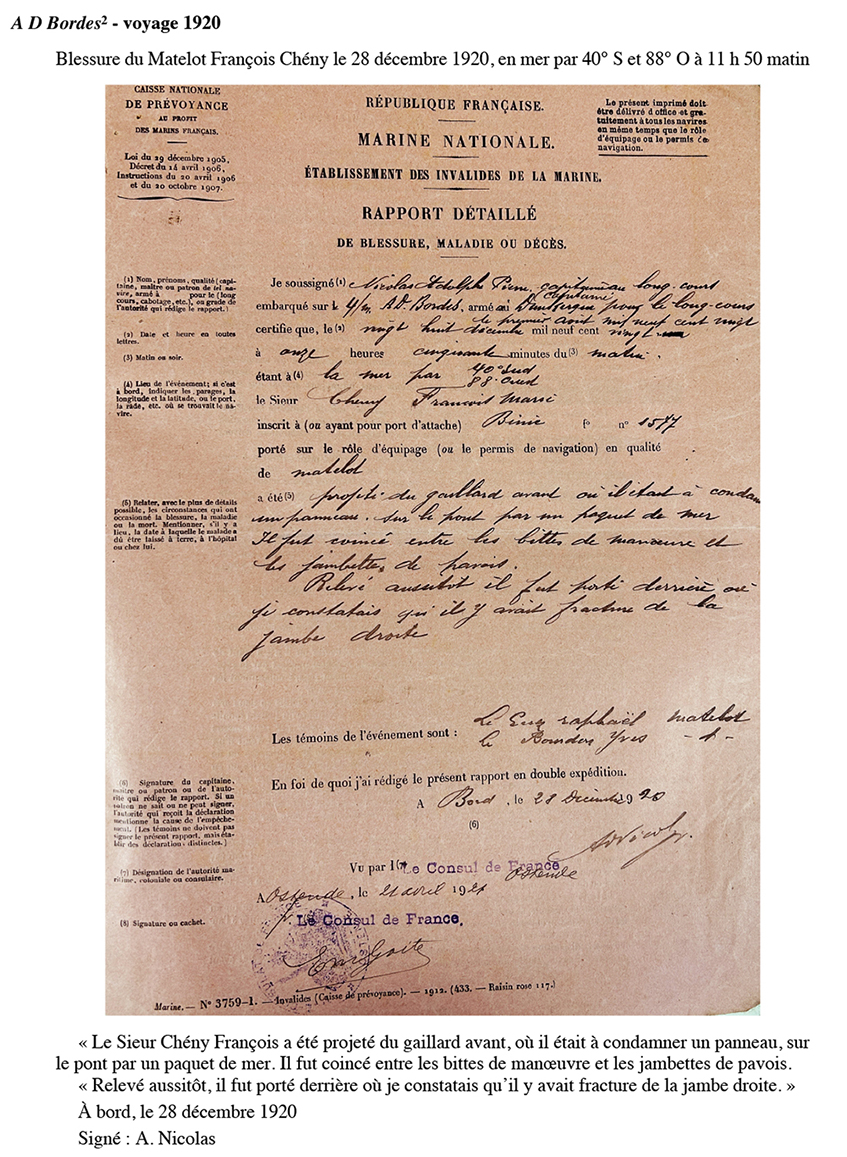 A D Bordes² - voyage 1920
Blessure du Matelot François Chény le 28 décembre 1920, en mer par 40° S et 88° O à 11 h 50 matin
CAISSE NATIONALE
DE PRÉVOYANCE
AU PROFIT
DES MARINS FRANÇAIS.
Loi du 29 décembre 1905,
Décret du 14 avril 1906,
Instructions du 20 avril 1906
et du 20 octobre 1907.
RÉPUBLIQUE FRANÇAISE.
MARINE NATIONALE.
ÉTABLISSEMENT DES INVALIDES DE LA MARINE.
RAPPORT DÉTAILLÉ
DE BLESSURE, MALADIE OU DÉCÈS.
Le présent imprimé doit
être délivré d'office et gra-
tuitement à tous les navires
en même temps que le rôle
d'équipage ou le permis de
navigation.
(1) Nom, prénoms, qualité (capi-
taine, maître ou patron de tel na-
vire, armé à pour le (long
cours, cabotage, etc.), ou grade de
l'autorité qui rédige le rapport.)
(2) Date et heure en toutes
lettres.
(3) Matin ou soir.
(4) Lieu de l'événement; si c'est
à bord, indiquer les parages, la
longitude et la latitude, ou le port,
la rade, etc. où se trouvait le na-
vire.
(5) Relater, avec le plus de détails
possible, les circonstances qui ont
occasionné la blessure, la maladie
ou la mort. Mentionner, s'il y a
lieu, la date à laquelle le malade a
dû être laissé à terre, à l'hôpital
ou chez lui.
Je soussigné (1) Nicolas Adolphe Pierre, capitaine au long-cours
capitaine
embarqué sur le A.D. Bordes, armé à Dunkerque pour le long-cours
le premier août mil neuf cent vingt
certifie que, le (2) vingt huit décembre mil neuf cent vingt
à onze heures cinquante minutes du (3) matin,
étant à (4) la mer par 40° Sud
88° Ouest
le Sieur Cheny François Marie
inscrit à (ou ayant pour port d'attache) Binic f° n° 1577
porté sur le rôle d'équipage (ou le permis de navigation) en qualité
de matelot
a été (5) projeté du gaillard avant où il était à condam
un panneau. Sur le pont par un paquet de mer
Il fut coincé entre les bittes de manœuvre et
les jambettes de pavois.
Relevé aussitôt il fut porté derrière où
je constatais qu'il y avait fracture de la
jambe droite
Les témoins de l'événement sont : Le raphaël matelot
le Bourdon Yves -d-
(6) Signature du capitaine,
maître ou patron ou de l'auto-
rité qui rédige le rapport. Si un
patron ne sait ou ne peut signer,
l'autorité qui reçoit la déclaration
mentionne la cause de l'empêche-
ment. (Les témoins ne doivent pas
signer le présent rapport, mais éta-
blir des déclarations distinctes.)
(7) Désignation de l'autorité ma-
ritime, coloniale ou consulaire.
(8) Signature ou cachet.
En foi de quoi j'ai rédigé le présent rapport en double expédition.
A Bord, le 28 Décembre 1920
(6)
A Nicolas
Vu par (7) Le Consul de France
Ostende
A Ostende, le 21 avril 1921
Le Consul de France,
Marine. — N° 3759-1. — Invalides (Caisse de prévoyance). — 1912. (433. — Raisin rose 117.)
« Le Sieur Chény François a été projeté du gaillard avant, où il était à condamner un panneau, sur
le pont par un paquet de mer. Il fut coincé entre les bittes de manœuvre et les jambettes de pavois.
« Relevé aussitôt, il fut porté derrière où je constatais qu'il y avait fracture de la jambe droite. »
À bord, le 28 décembre 1920
Signé : A. Nicolas